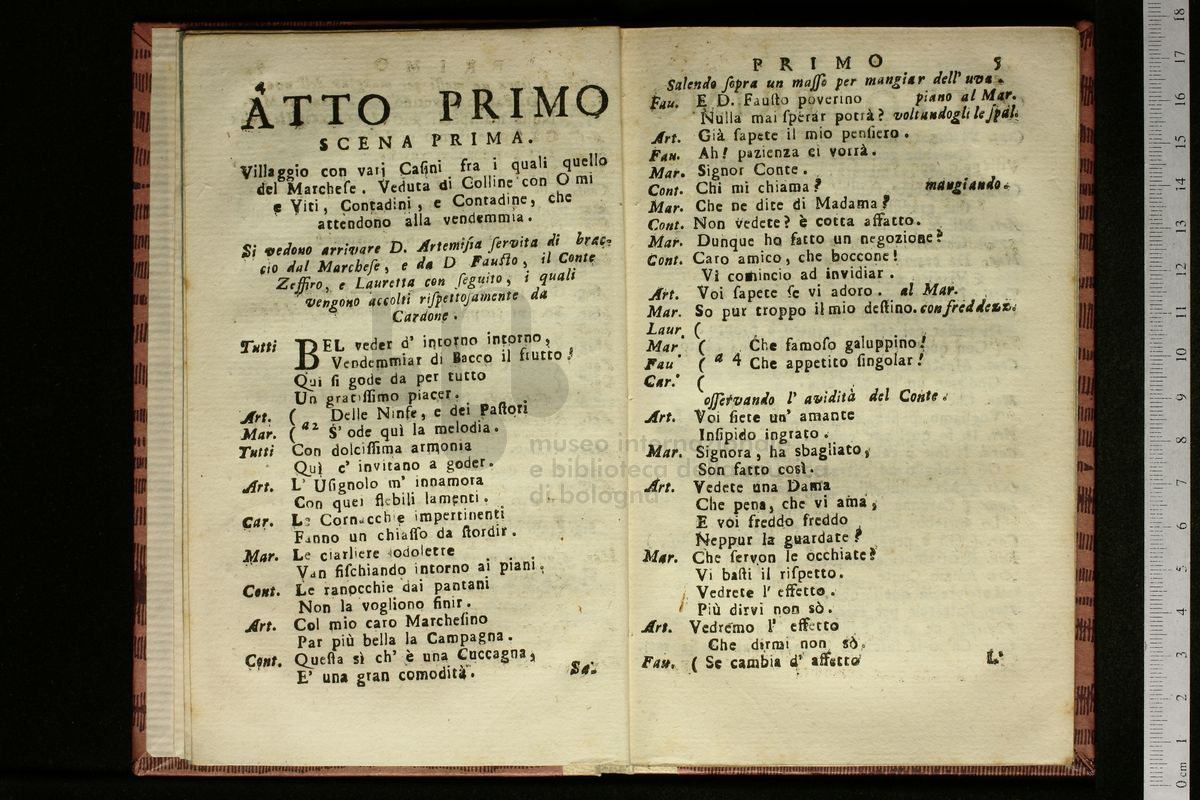 4
ATTO PRIMO
SCENA PRIMA.
Villaggio con varj Casini fra i quali quello
del Marchese. Veduta di Colline con O mi
e Viti, Contadini, e Contadine, che
attendono alla vendemmia.
Si vedono arrivare D. Artemisia servita di brac-
cio dal Marchese, e da D Fausto, il Conte
Zeffiro, e Lauretta con seguito, i quali
vengono accolti rispettosamente da
Cardone.
Tutti BEL veder d' intorno intorno,
Vendemmiar di Bacco il frutto!
Qui si gode da per tutto
Un gratissimo piacer.
Art. ( Delle Ninfe, e dei Pastori
Mar. ( a 2 S' ode quì la melodia.
Tutti Con dolcissima armonia
Quì c' invitano a goder.
Art. L' Usignolo m' innamora
Con quei flebili lamenti.
Car. Le Cornacchie impertinenti
Fanno un chiasso da stordir.
Mar. Le ciarliere odolette
Van fischiando intorno ai piani,
Cont. Le ranocchie dai pantani
Non la vogliono finir.
Art. Col mio caro Marchesino
Par più bella la Campagna.
Cont. Questa sì ch' è una Cuccagna,
E' una gran comodità.
Sa-
PRIMO 5
Salendo sopra un masso per mangiar dell' uva.
Fau. E D. Fausto poverino piano al Mar.
Nulla mai sperar potrà? voltandogli le spal.
Art. Già sapete il mio pensiero.
Fau. Ah! pazienza ci vorrà.
Mar. Signor Conte.
Cont. Chi mi chiama? mangiando.
Mar. Che ne dite di Madama?
Cont. Non vedete? è cotta affatto.
Mar. Dunque ho fatto un negozione?
Cont. Caro amico, che boccone!
Vi comincio ad invidiar.
Art. Voi sapete se vi adoro. al Mar.
Mar. So pur troppo il mio destino. con freddezz.
Laur (
Mar ( Che famoso galuppino!
Fau ( a 4 Che appetito singolar!
Car. (
osservando l' avidità del Conte.
Art. Voi siete un' amante
Insipido ingrato.
Mar. Signora, ha sbagliato,
Son fatto così.
Art. Vedete una Dama
Che pena, che vi ama,
E voi freddo freddo
Neppur la guardate?
Mar. Che servon le occhiate?
Vi basti il rispetto.
Vedrete l' effetto.
Più dirvi non sò.
Art. Vedremo l' effetto
Che dirmi non sò.
Fau. ( Se cambia d' affetto
L'
museo internazionale
e biblioteca della musica
di bologna
0 cm 1 2 3 4 5 6 7 8 9 10 11 12 13 14 15 16 17 18